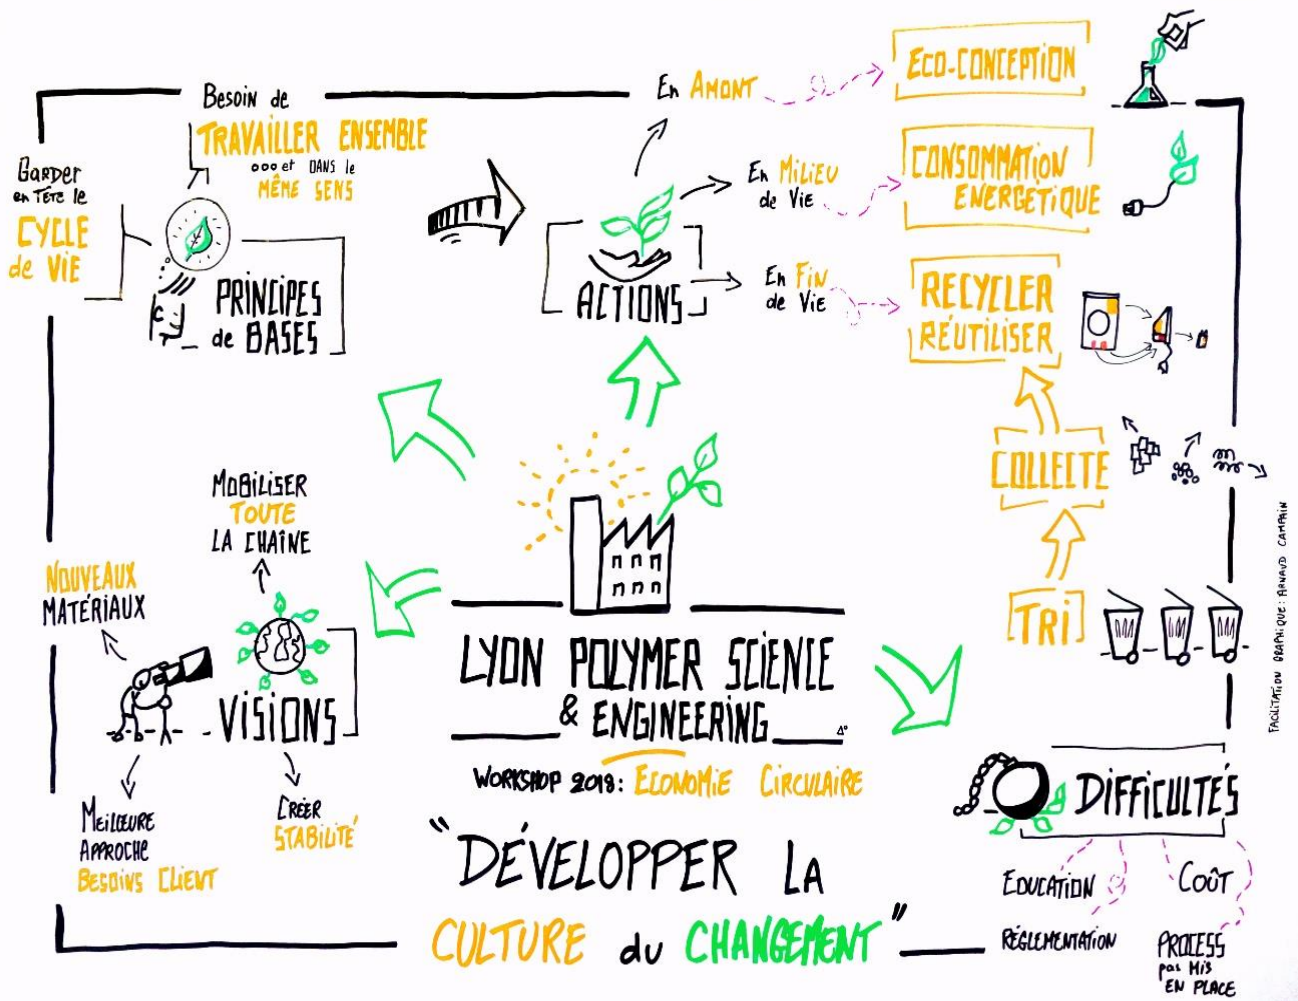 Besoin de
TRAVAILLER ENSEMBLE
...et DANS le
MÊME SENS
GARDER
en TÊTE le
CYCLE
de VIE
PRINCIPES
de BASES
ACTIONS
En AMONT
ECO-CONCEPTION
En MILIEU
de Vie
CONSOMMATION
ENERGÉTIQUE
En FIN
de Vie
RECYCLER
RÉUTILISER
COLLECTE
TRI
MOBILISER
TOUTE
LA CHAÎNE
NOUVEAUX
MATÉRIAUX
VISIONS
MEILLEURE
APPROCHE
BESOINS CLIENT
CRÉER
STABILITÉ
LYON POLYMER SCIENCE
& ENGINEERING
WORKSHOP 2018: ECONOMIE CIRCULAIRE
"DÉVELOPPER LA
CULTURE du CHANGEMENT"
DIFFICULTÉS
EDUCATION
COÛT
RÉGLEMENTATION
PROCESS
pas MIS
EN PLACE
FACILITATION GRAPHIQUE: ARNAUD CAMPAIN